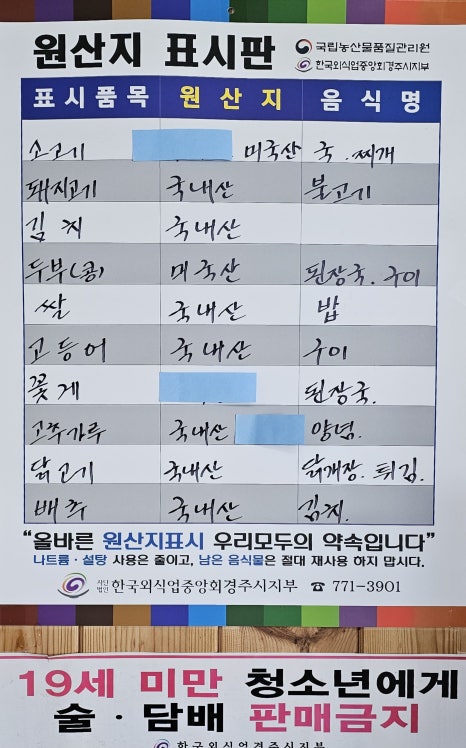 원산지 표시판
국립농산물품질관리원
한국외식업중앙회경주시지부
표시품목 원산지 음식명
소고기 미국산 국. 찌개
돼지고기 국내산 불고기
김치 국내산
두부(콩) 미국산 된장국. 구이
쌀 국내산 밥
고등어 국내산 구이
꽃게 된장국.
고추가루 국내산 양념.
닭고기 국내산 닭개장. 튀김.
배추 국내산 김치.
“올바른 원산지표시 우리모두의 약속입니다”
나트륨·설탕 사용은 줄이고, 남은 음식물은 절대 재사용 하지 맙시다.
사단법인 한국외식업중앙회경주시지부 ☎ 771-3901
19세 미만 청소년에게
술·담배 판매금지
한국외식업중앙회경주시지부